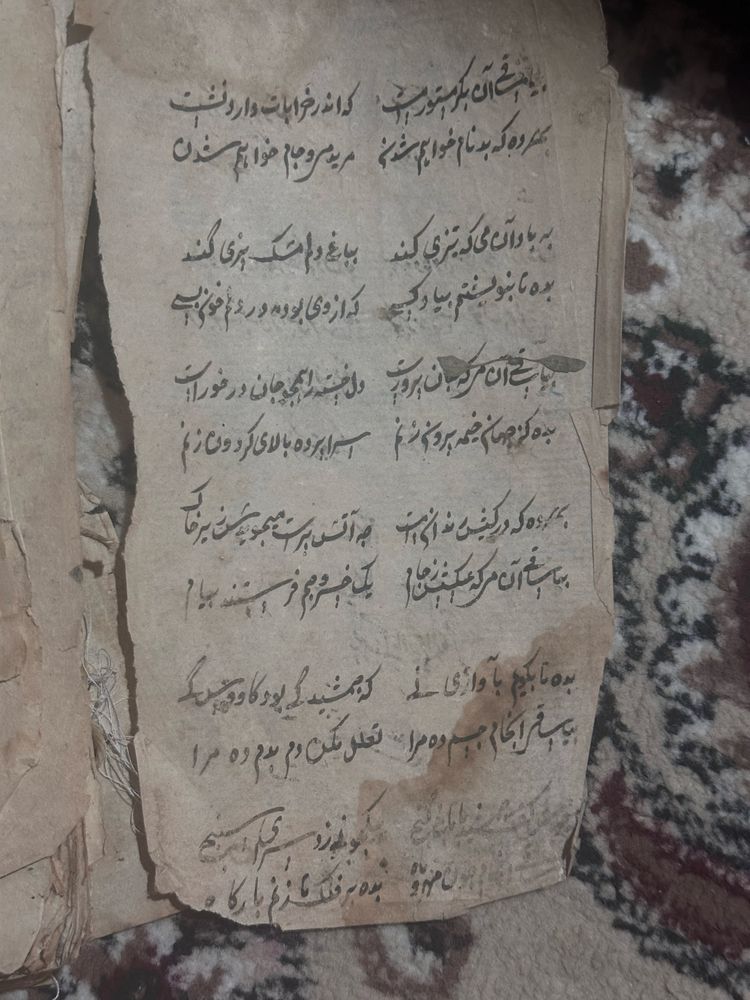 بیا ساقی آن بکر مستور مست که اندر خرابات دارد نشست
بمن ده که بدنام خواهم شدن مرید می و جام خواهم شدن
به یاد آن می که تیزی کند بباغ دلم مشک بیزی کند
بده تا بنوشم بیاد کسی که از وی بود در دلم خون بسی
بیا ساقی آن می که جان پرورست دل خسته را همچو جان در خورست
بده کز جهان خیمه بیرون زنم سراپرده بالای گردون زنم
بمن ده که در کیش رندان مست چه آتش پرست
بیا ساقی آن می که عکسش ز جام بکیخسرو و جم فرستد پیام
بده تا بگویم بآوازی نی که جمشید کی بود کاوس کی
بیا ساقی از جام جم ده مرا تعلل مکن دم بدم ده مرا
سرای سپنج
بده بر فلک تا زنم بارگاه